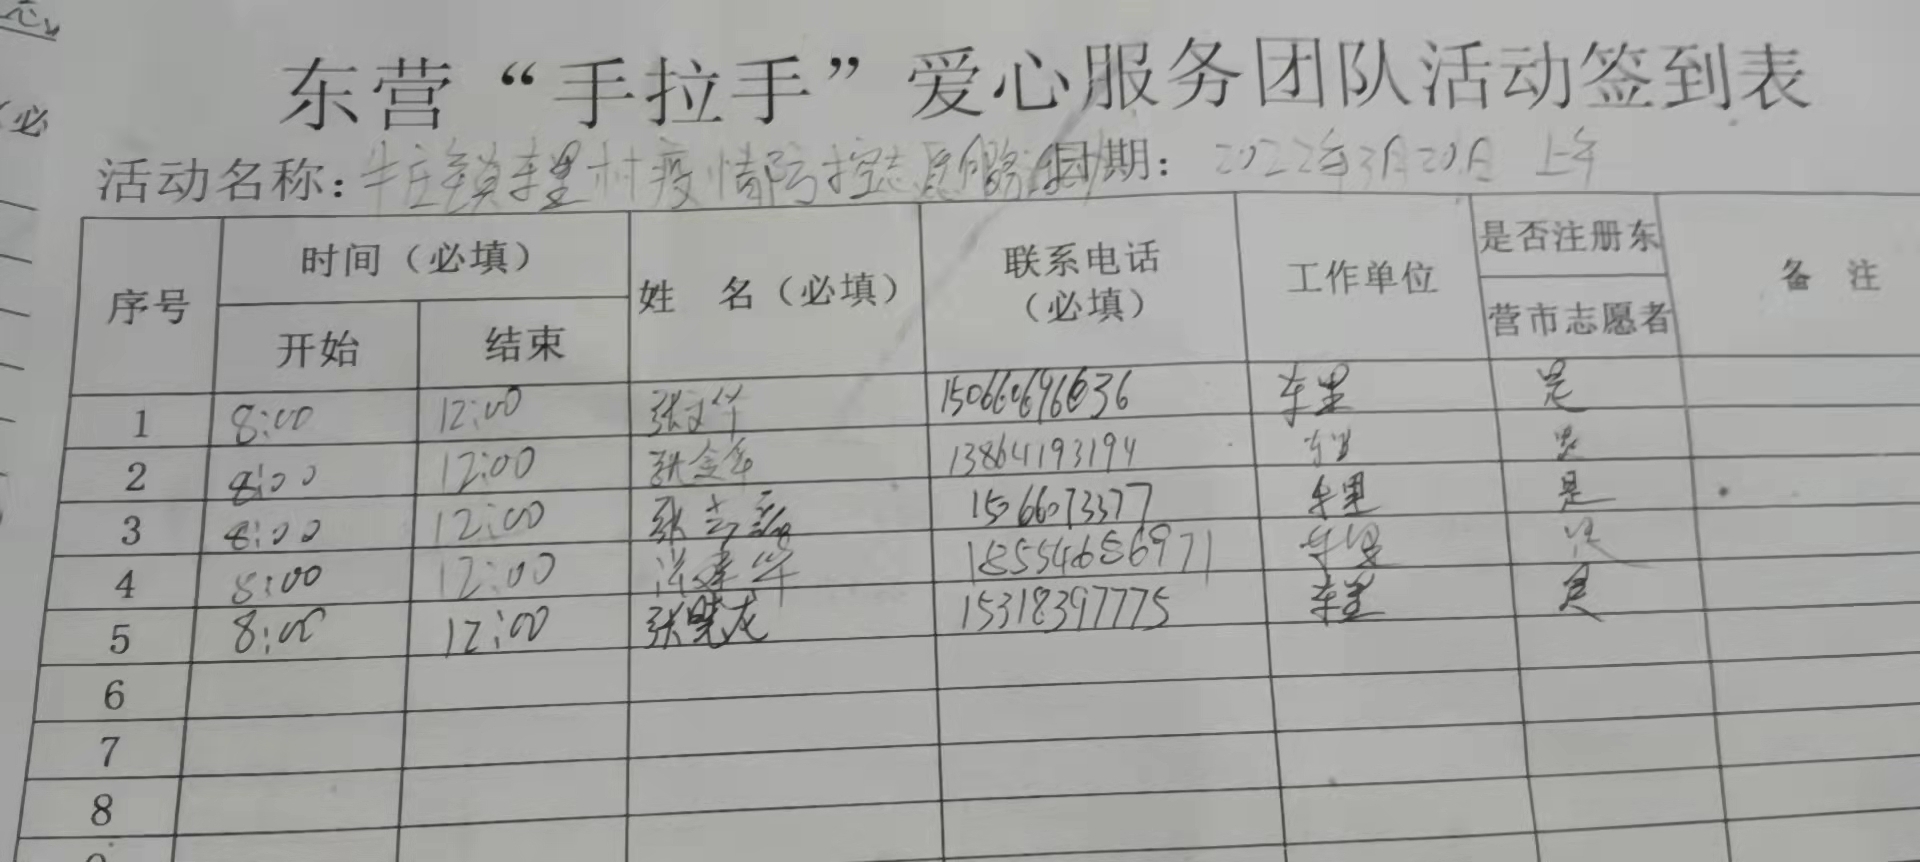 东营“手拉手”爱心服务团队活动签到表
活动名称：牛庄镇车里村疫情防控志愿服务活动 日期： 2022年3月20日 上午
序号 时间（必填） 姓 名（必填） 联系电话（必填） 工作单位 是否注册东营市志愿者 备 注
开始 结束
1 8:00 12:00 张文华 车里 是
2 8:00 12:00 张金华 13864193194 车里 是
3 8:00 12:00 张 15066073377 车里 是
4 8:00 12:00 张建华 18554686971 车里 是
5 8:00 12:00 张晓龙 15318397775 车里 是
6
7
8